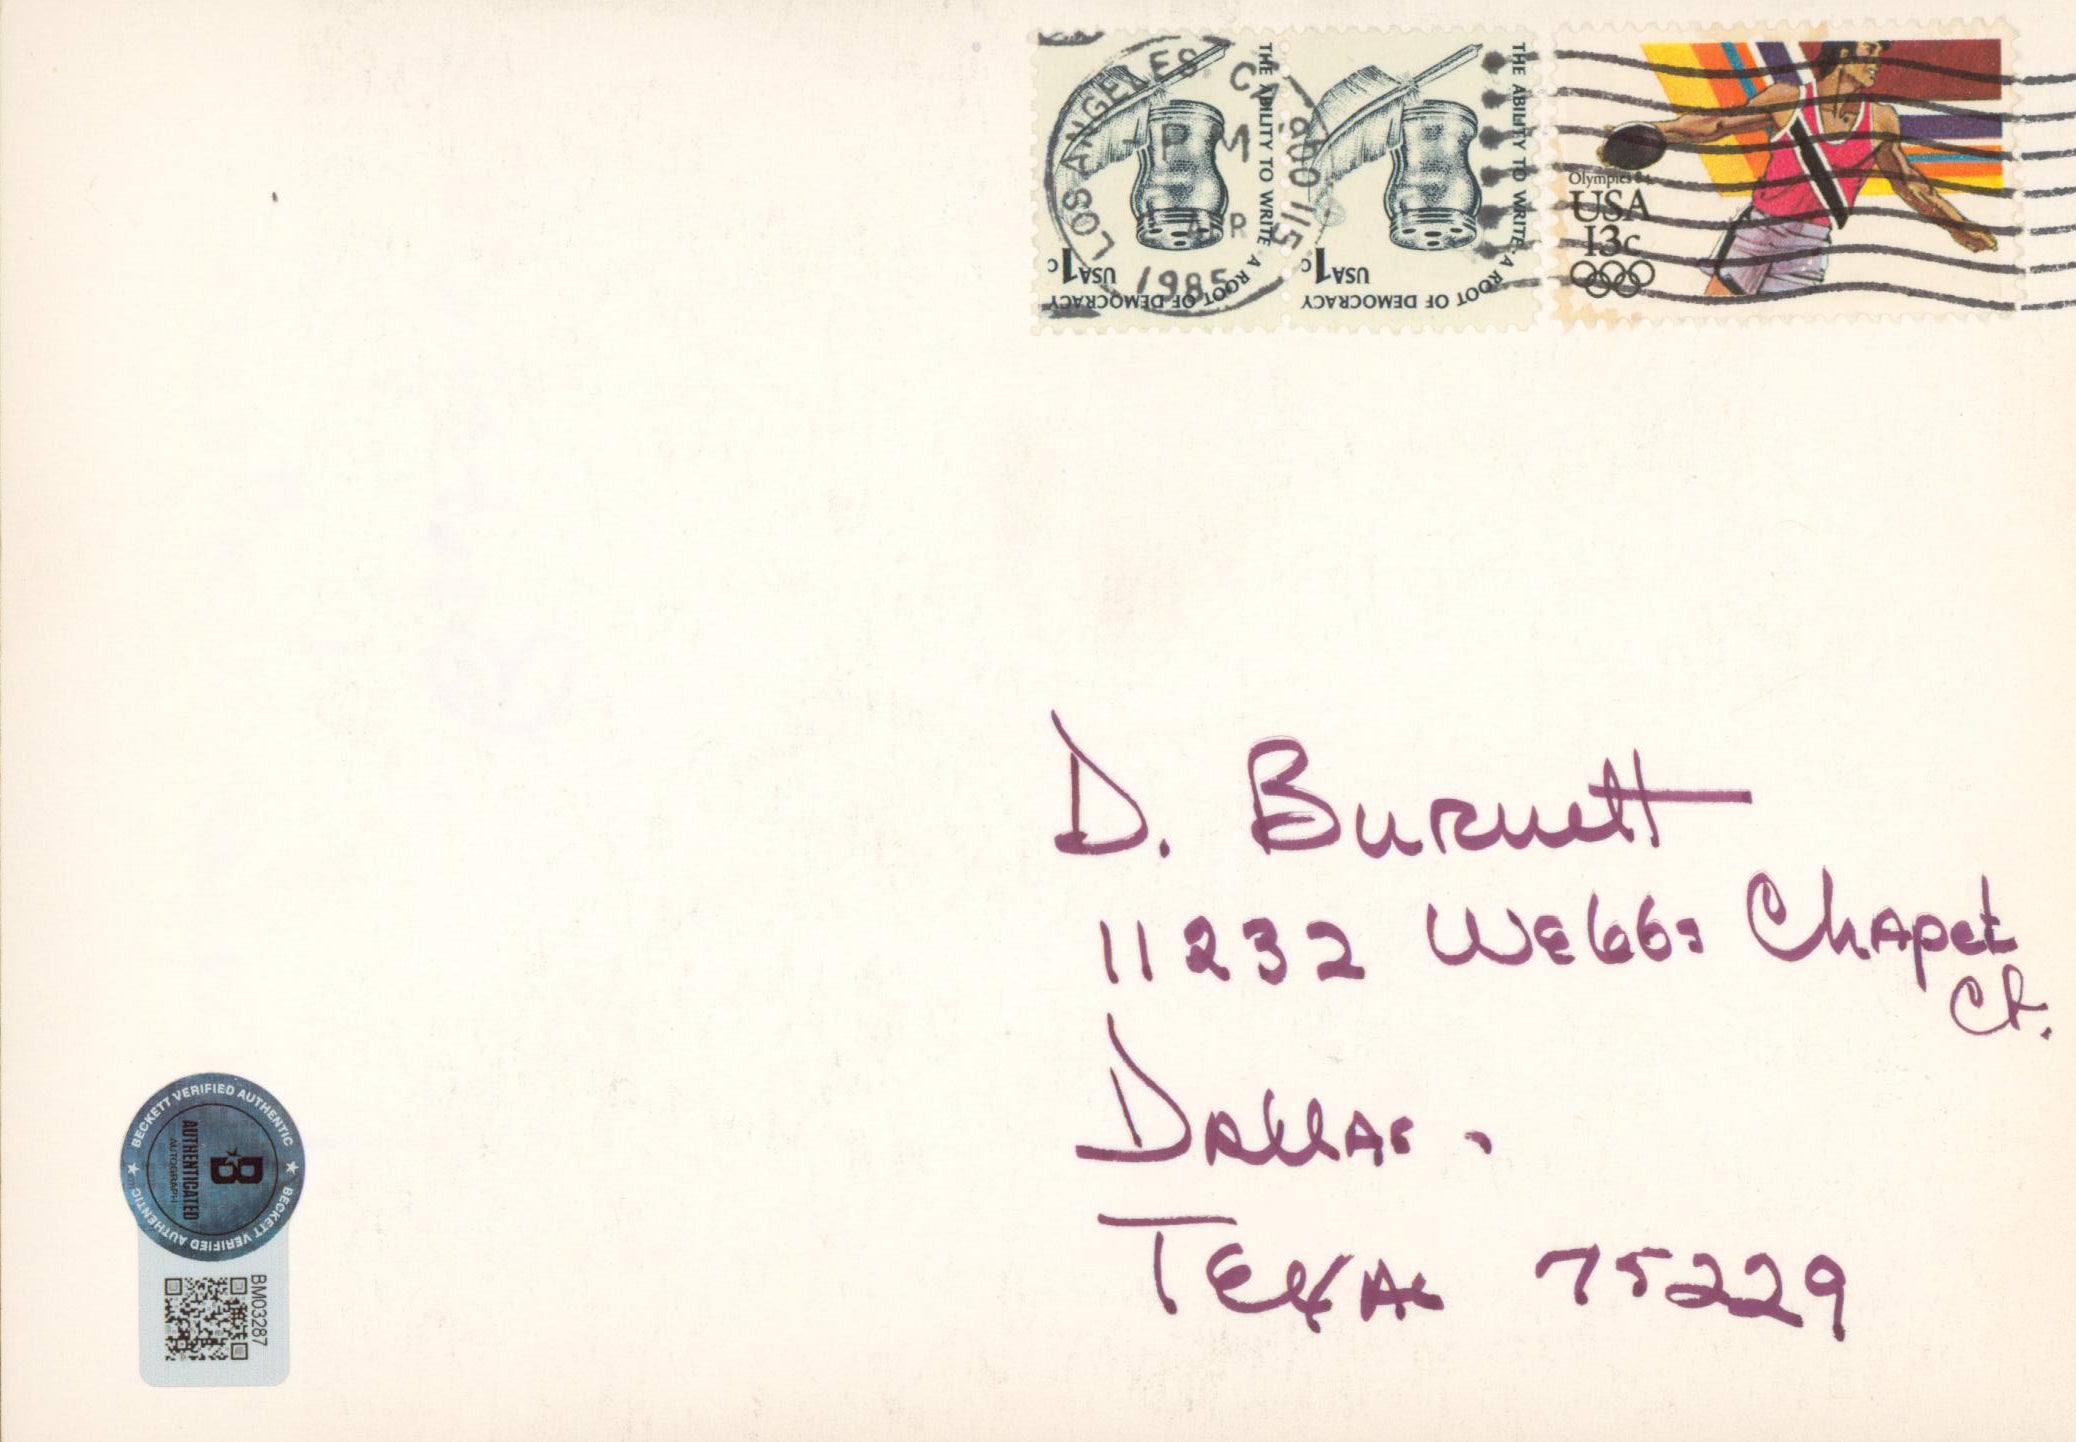 THE ABILITY TO WRITE·A ROOT OF DEMOCRACY
USA 1c
THE ABILITY TO WRITE·A ROOT OF DEMOCRACY
USA 1c
LOS ANGELES CA 900 1/5
PM
APR
1985
Olympics 84
USA
13c
D. Burnett
11232 Webbs Chapel
Ct.
Dallas.
Texas 75229
BECKETT VERIFIED AUTHENTIC ★ BECKETT VERIFIED AUTHENTIC ★
B
AUTHENTICATED
AUTOGRAPH
BM03287